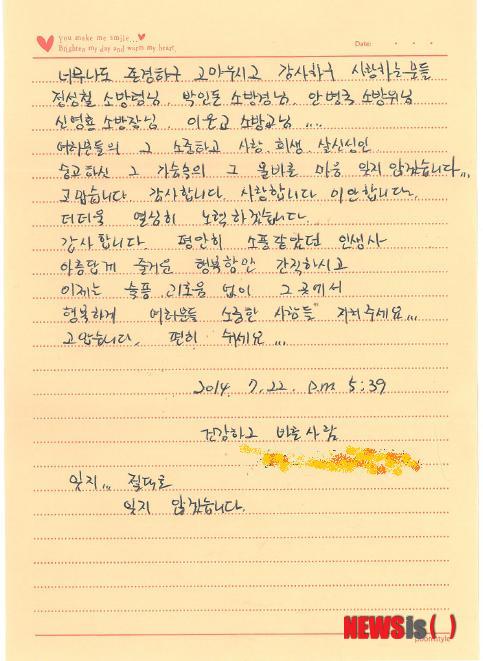 you make me smile...
Brighten my day and warm my heart.
Date:
너무나도 존경하구 고마우시고 감사하구 사랑하는 분들
정성철 소방령님, 박인돈 소방경님, 안병국 소방위님
신영룡 소방장님, 이은교 소방교님 ....
여러분들의 그 소중하고 사랑, 희생, 살신성인
숭고하신 그 가슴속의 그 올바른 마음 잊지 않겠습니다...
고맙습니다. 감사합니다. 사랑합니다. 미안합니다.
더더욱 열심히 노력하겠습니다.
감사합니다. 평안히 소풍같았던 인생사
아름답게 즐거운 행복함만 간직하시고
이제는 슬픔, 괴로움 없이 그 곳에서
행복하게 여러분들 소중한 사람들 지켜주세요...
고맙습니다. 편히 쉬세요...
2014. 7. 22. P.M 5:39
건강하고 바른사람
잊지... 절대로
잊지 않겠습니다.
NEWSis( )